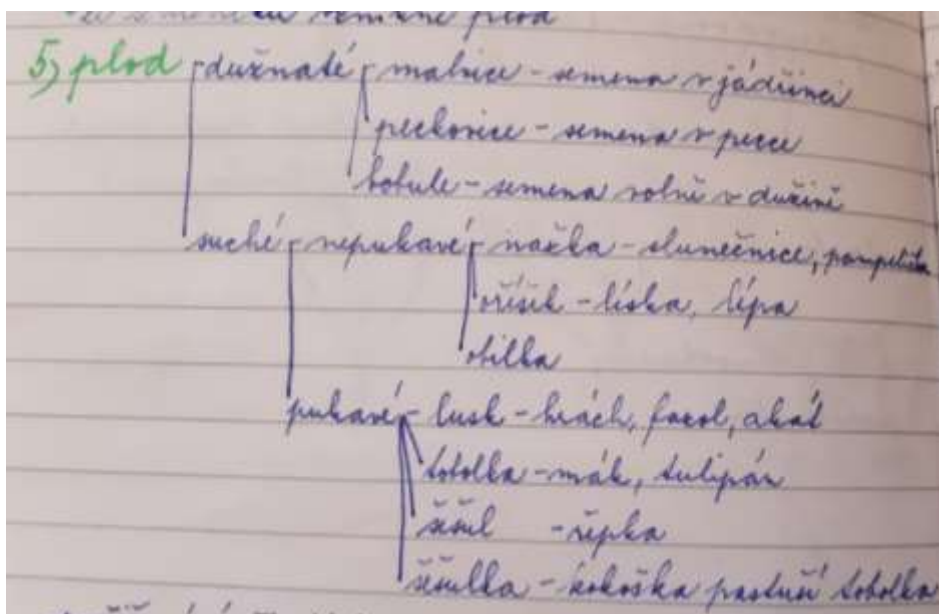 5) plod dužnaté malvice - semena v jádřinci
peckovice - semena v pecce
bobule - semena volně v dužině
suché nepukavé nažka - slunečnice, pampeliška
oříšek - líska, lípa
obilka
pukavé - lusk - hrách, fazol, akát
tobolka - mák, tulipán
šešul - řepka
šešulka - kokoška pastuší tobolka